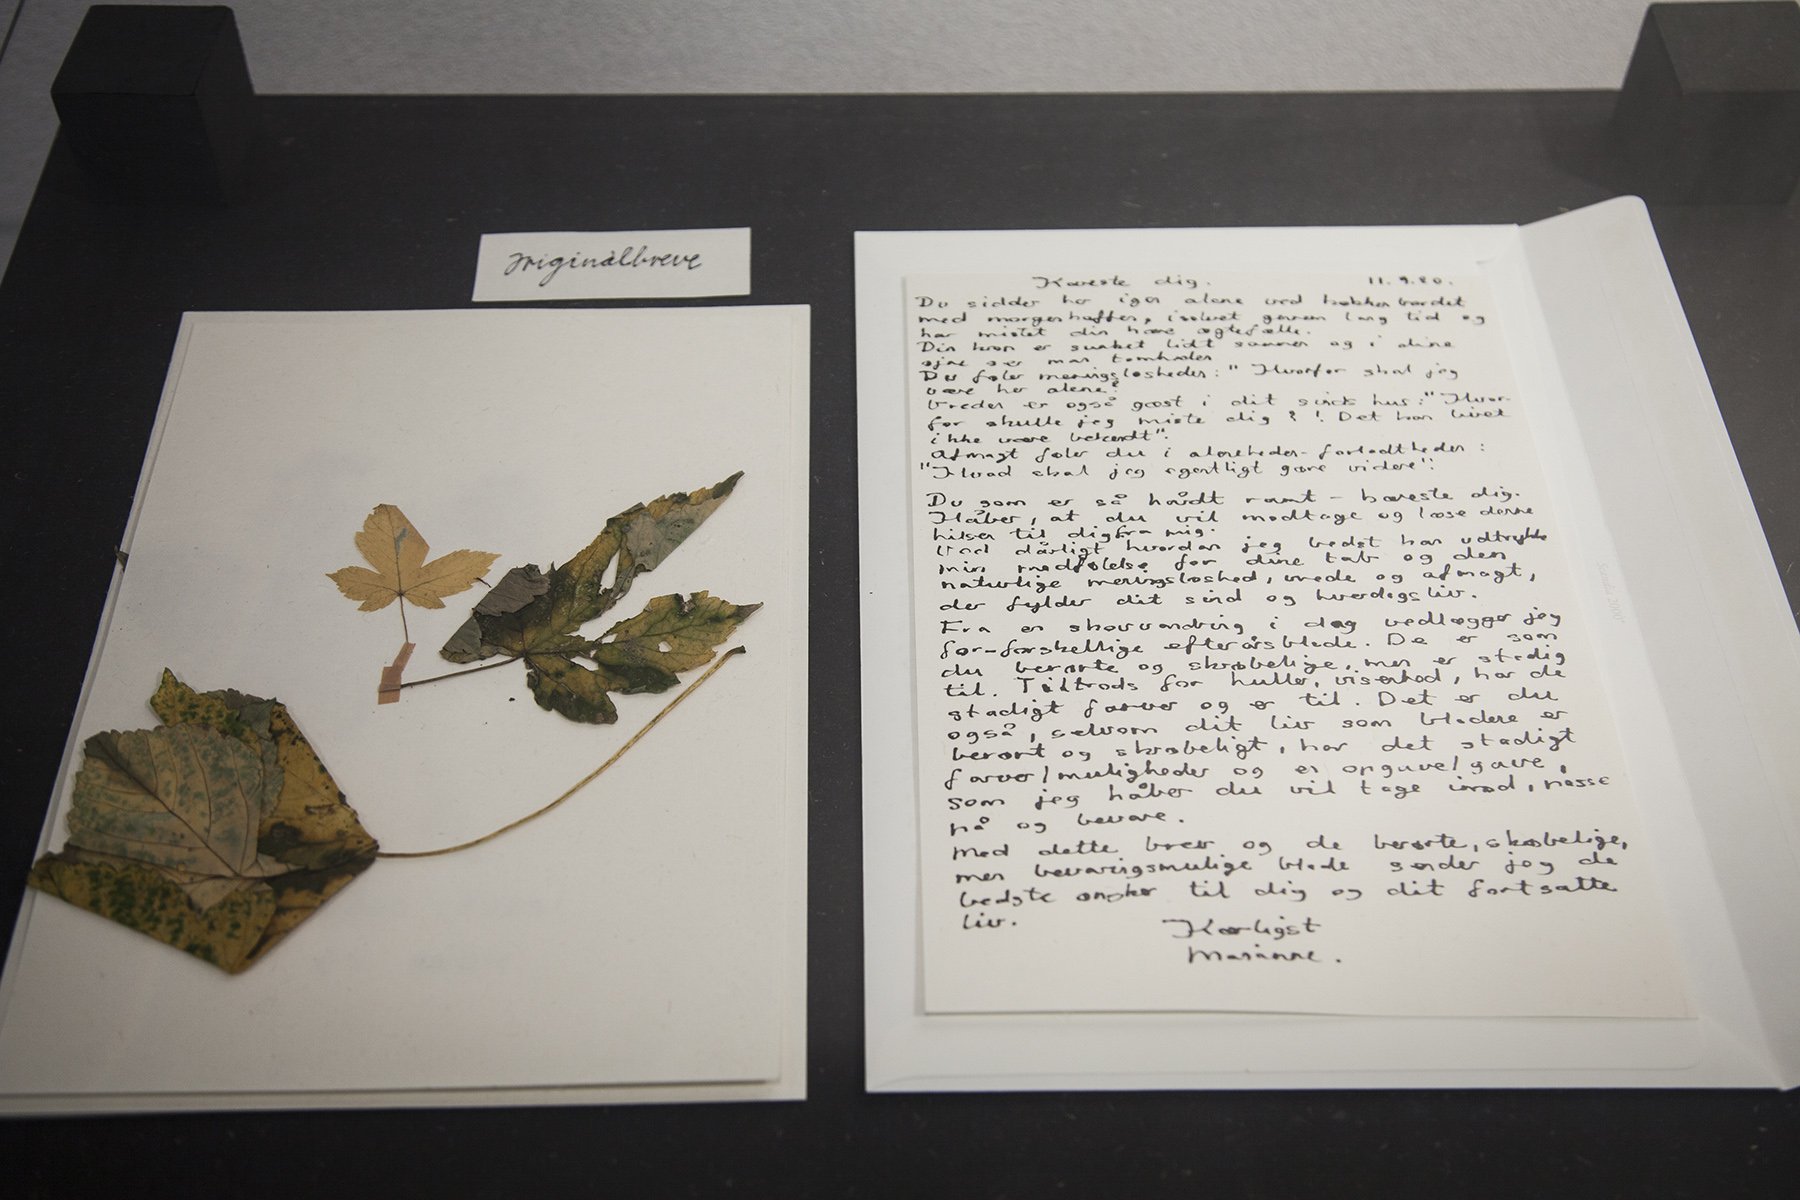 Originalbreve
Kæreste dig. 11.9.20.
Du sidder her igen alene ved køkkenbordet
med morgenkaffen, isoleret gennem lang tid og
har mistet din kære ægtefælle.
Din krop er sunket lidt sammen og i dine
øjne ser man tomheden
Du føler meningsløsheden: "Hvorfor skal jeg
være her alene?
Vreden er også gæst i dit sinds hus: "Hvor-
for skulle jeg miste dig?! Det kan livet
ikke være bekendt".
Afmagt føler du i aloneheden-forladtheden:
"Hvad skal jeg egentligt gøre videre":
Du som er så hårdt ramt - kæreste dig.
Håber, at du vil modtage og læse denne
hilsen til dig fra mig.
Ved dårligt hvordan jeg bedst kan udtrykke
min medfølelse for dine tab og den
naturlige meningsløshed, vrede og afmagt,
der fylder dit sind og hverdagsliv.
Fra en skovvandring i dag vedlægger jeg
for-forskellige efterårsblade. De er som
du berørte og skrøbelige, men er stadig
til. Tiltrods for huller, visenhed, har de
stadigt farver og er til. Det er du
også, selvom dit liv som bladene er
berørt og skrøbeligt, har det stadigt
farver/muligheder og en opgave/gave,
som jeg håber du vil tage imod, passe
på og bevare.
Med dette brev og de berørte, skrøbelige,
men bevaringsmulige blade sender jeg de
bedste ønsker til dig og dit fortsatte
liv.
Kærligst
Marianne.